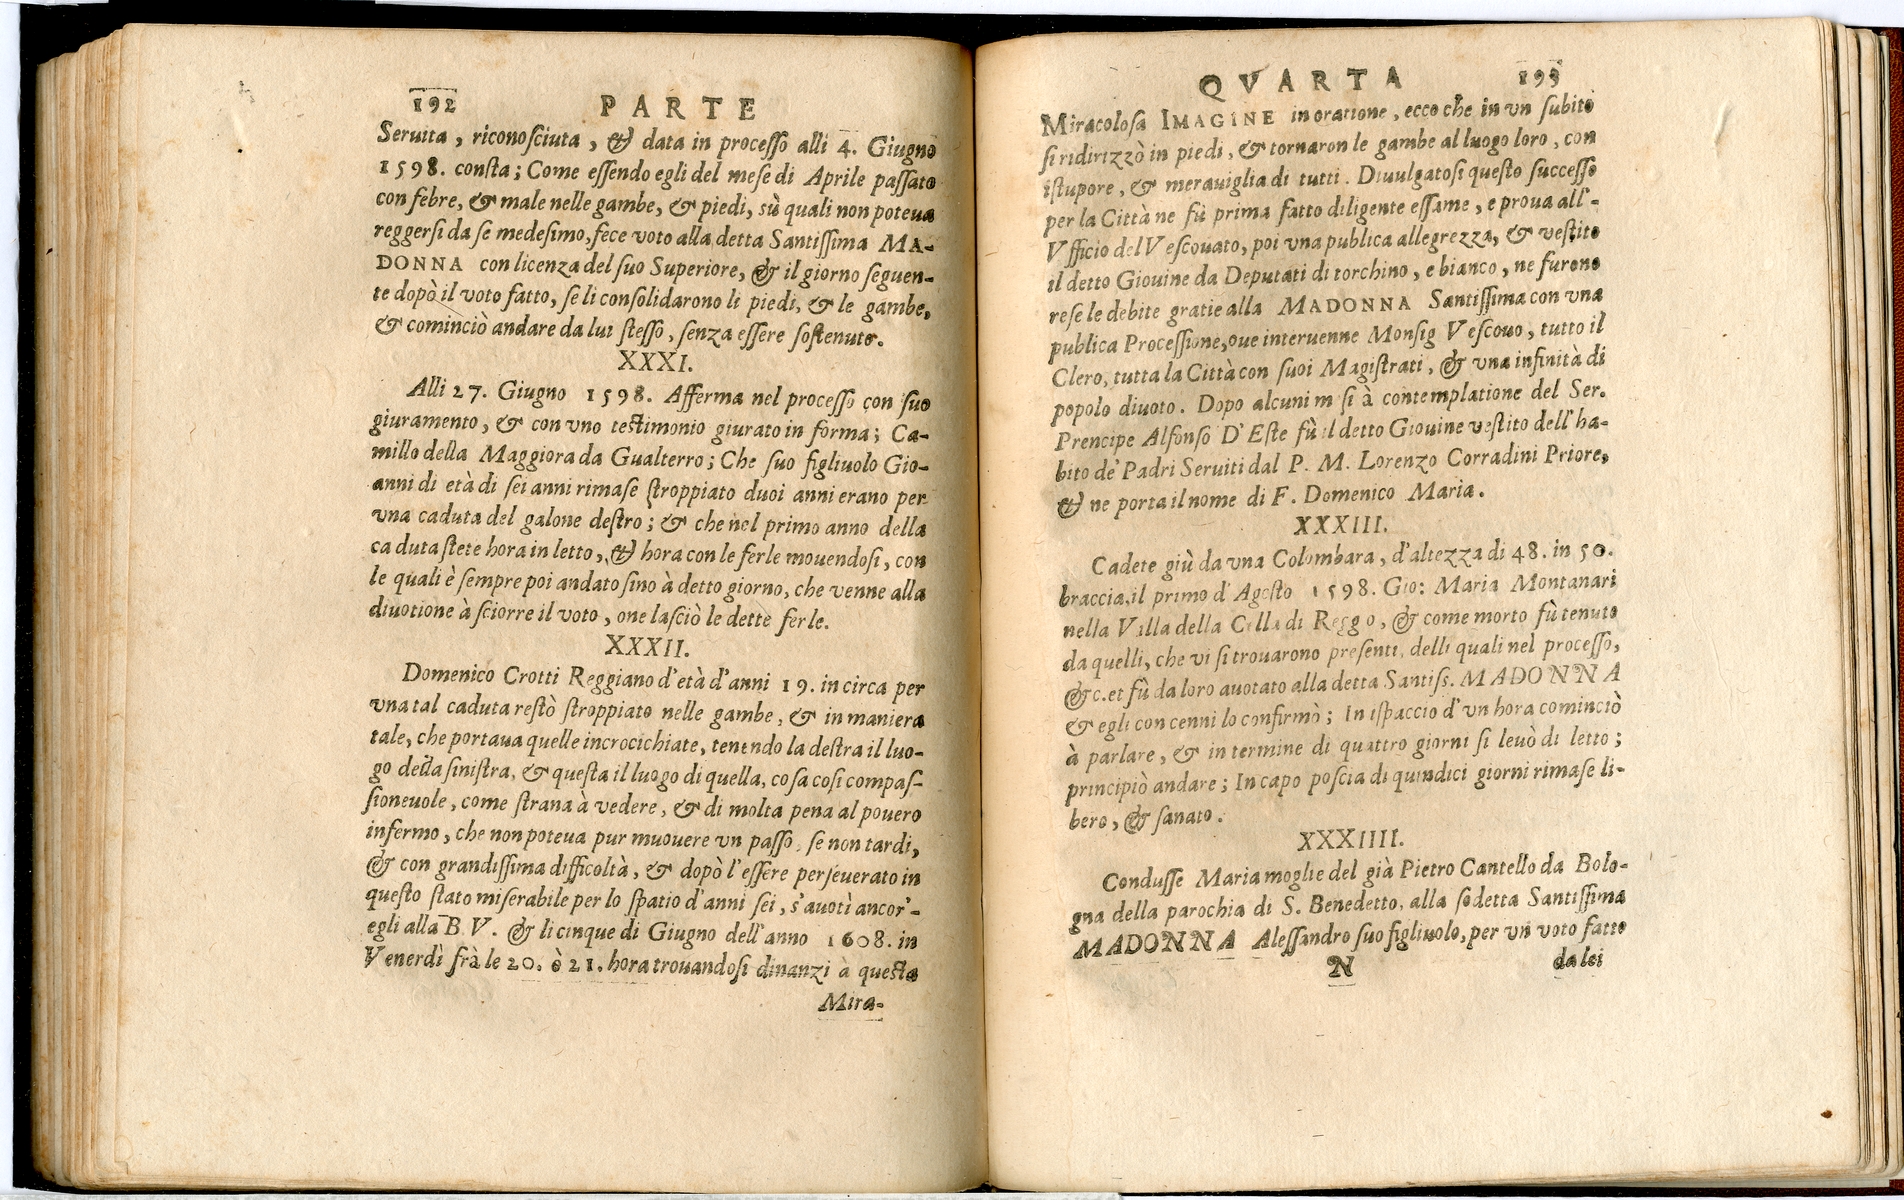 192 PARTE
Seruita, riconosciuta, & data in processo alli 4. Giugno
1598. consta; Come essendo egli del mese di Aprile passato
con febre, & male nelle gambe, & piedi, sù quali non poteua
reggersi da se medesimo, fece voto alla detta Santissima MA-
DONNA con licenza del suo Superiore, & il giorno seguen-
te dopò il voto fatto, se li consolidarono li piedi, & le gambe,
& cominciò andare da lui stesso, senza essere sostenuto.
XXXI.
Alli 27. Giugno 1598. Afferma nel processo con suo
giuramento, & con vno testimonio giurato in forma; Ca-
millo della Maggiora da Gualterro; Che suo figliuolo Gio-
anni di età di sei anni rimase stroppiato duoi anni erano per
vna caduta del galone destro; & che nel primo anno della
caduta stete hora in letto, & hora con le ferle mouendosi, con
le quali è sempre poi andato sino à detto giorno, che venne alla
diuotione à sciorre il voto, one lasciò le dette ferle.
XXXII.
Domenico Crotti Reggiano d'età d'anni 19. in circa per
vna tal caduta restò stroppiato nelle gambe, & in maniera
tale, che portaua quelle incrocichiate, tenendo la destra il luo-
go della sinistra, & questa il luogo di quella, cosa così compas-
sioneuole, come strana à vedere, & di molta pena al pouero
infermo, che non poteua pur muouere vn passo, se non tardi,
& con grandissima difficoltà, & dopò l'essere perseuerato in
questo stato miserabile per lo spatio d'anni sei, s'auotì ancor'-
egli alla B V. & li cinque di Giugno dell'anno 1608. in
Venerdì frà le 20. ò 21. hora trouandosi dinanzi à questa
Mira-
QVARTA 193
Miracolosa IMAGINE in oratione, ecco che in vn subito
si ridirizzò in piedi, & tornaron le gambe al luogo loro, con
istupore, & merauiglia di tutti. Diuulgatosi questo successo
per la Città ne fù prima fatto diligente essame, e proua all'-
Vfficio del Vescouato, poi vna publica allegrezza, & vestito
il detto Giouine da Deputati di torchino, e bianco, ne furono
rese le debite gratie alla MADONNA Santissima con vna
publica Processione, oue interuenne Monsig Vescouo, tutto il
Clero, tutta la Città con suoi Magistrati, & vna infinità di
popolo diuoto. Dopo alcuni m si à contemplatione del Ser.
Prencipe Alfonso D'Este fù il detto Giouine vestito dell'ha-
bito de' Padri Seruiti dal P. M. Lorenzo Corradini Priore,
& ne porta il nome di F. Domenico Maria.
XXXIII.
Cadete giù da vna Colombara, d'altezza di 48. in 50.
braccia, il primo d'Agosto 1598. Gio: Maria Montanari
nella Villa della Cella di Reggo, & come morto fù tenuto
da quelli, che vi si trouarono presenti, delli quali nel processo,
&c. et fù da loro auotato alla detta Santiss. MADONNA
& egli con cenni lo confirmò; In ispaccio d'vn hora cominciò
à parlare, & in termine di quattro giorni si leuò di letto;
principiò andare; In capo poscia di quindici giorni rimase li-
bero, & sanato.
XXXIIII.
Condusse Maria moglie del già Pietro Cantello da Bolo-
gna della parochia di S. Benedetto, alla sodetta Santissima
MADONNA Alessandro suo figliuolo, per vn voto fatto
N da lei